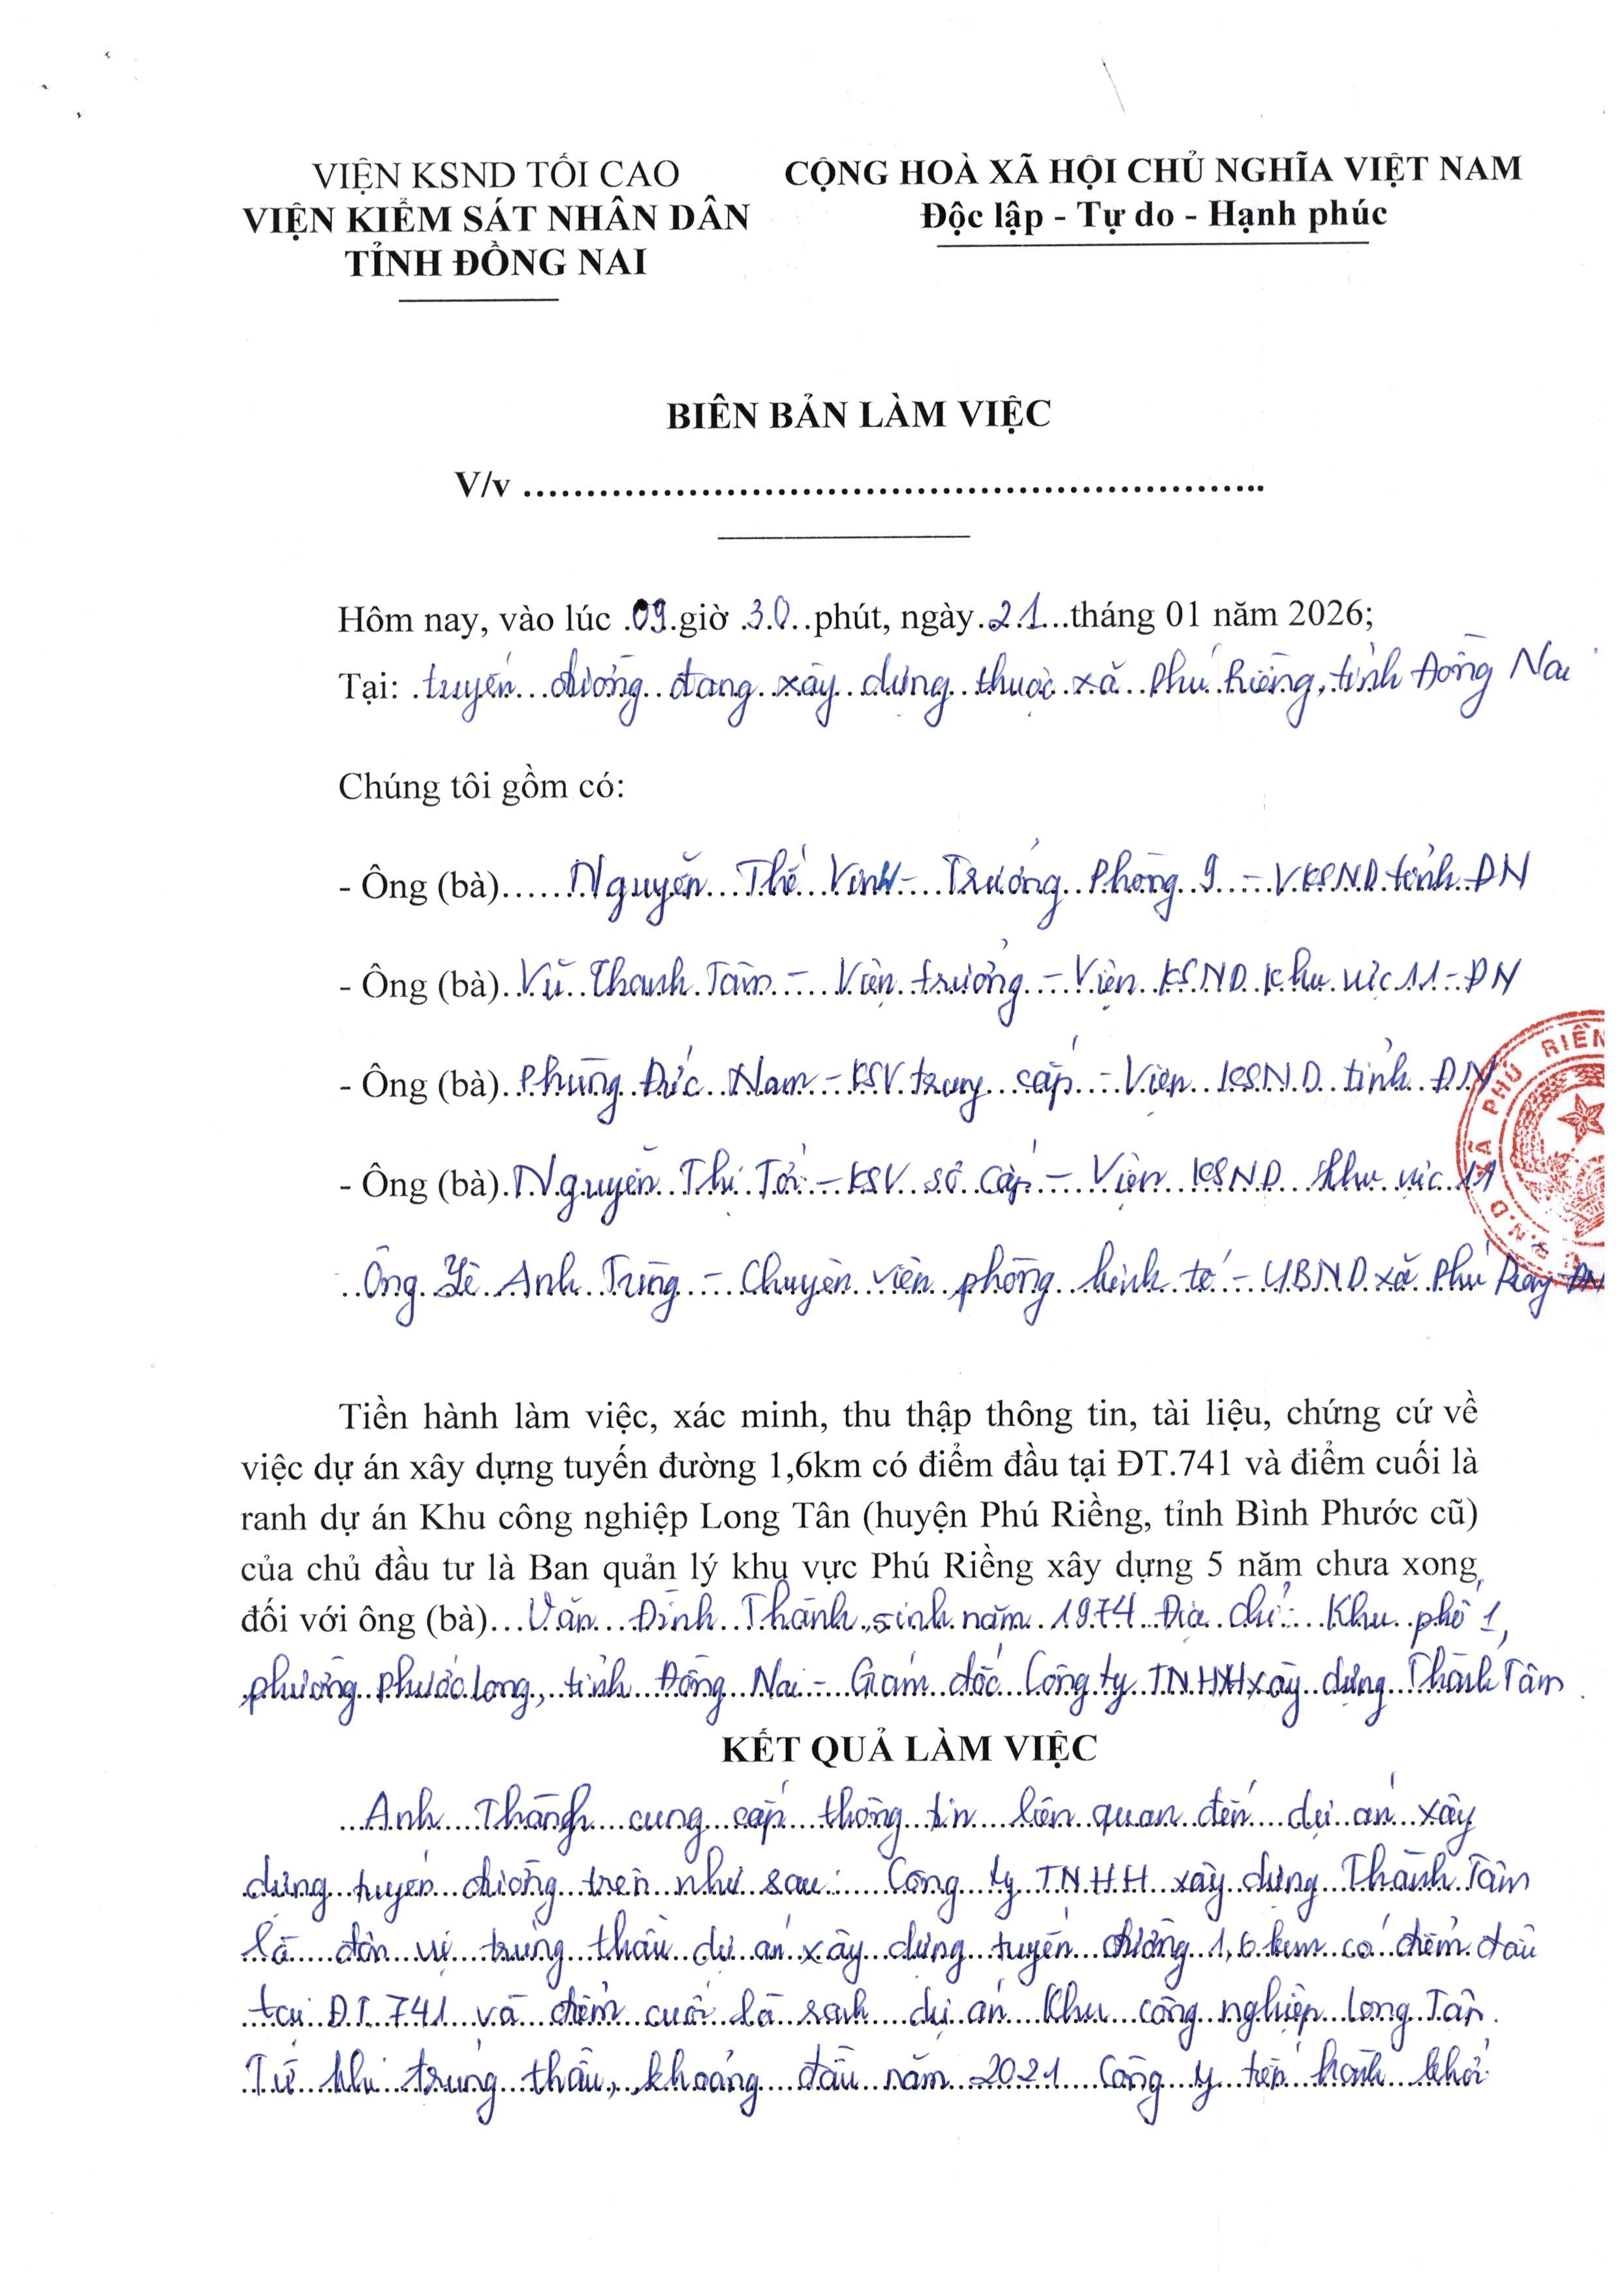 VIỆN KSND TỐI CAO
VIỆN KIỂM SÁT NHÂN DÂN
TỈNH ĐỒNG NAI
CỘNG HOÀ XÃ HỘI CHỦ NGHĨA VIỆT NAM
Độc lập - Tự do - Hạnh phúc
BIÊN BẢN LÀM VIỆC
V/v ...............................................................
Hôm nay, vào lúc 09 giờ 30 phút, ngày 21 tháng 01 năm 2026;
Tại: tuyến đường đang xây dựng thuộc xã Phú Riềng, tỉnh Đồng Nai
Chúng tôi gồm có:
- Ông (bà) Nguyễn Thế Vinh - Trưởng Phòng 9 - VKSND tỉnh ĐN
- Ông (bà) Vũ Thanh Tâm - Viện trưởng - Viện KSND Khu vực 11 - ĐN
- Ông (bà) Phùng Đức Nam - KSV trung cấp - Viện KSND tỉnh ĐN
- Ông (bà) Nguyễn Thị Tới - KSV sơ cấp - Viện KSND Khu vực 11
Ông Lê Anh Tùng - Chuyên viên phòng kinh tế - UBND xã Phú Riềng ĐN
U.B.N.D XÃ PHÚ RIỀN
Tiền hành làm việc, xác minh, thu thập thông tin, tài liệu, chứng cứ về
việc dự án xây dựng tuyến đường 1,6km có điểm đầu tại ĐT.741 và điểm cuối là
ranh dự án Khu công nghiệp Long Tân (huyện Phú Riềng, tỉnh Bình Phước cũ)
của chủ đầu tư là Ban quản lý khu vực Phú Riềng xây dựng 5 năm chưa xong
đối với ông (bà) Văn Đình Thành, sinh năm 1974 Địa chỉ: Khu phố 1,
phường Phước Long, tỉnh Đồng Nai - Giám đốc Công ty TNHH xây dựng Thành Tâm
KẾT QUẢ LÀM VIỆC
Anh Thành cung cấp thông tin liên quan đến dự án xây
dựng tuyến đường trên như sau: Công ty TNHH xây dựng Thành Tâm
là đơn vị trúng thầu dự án xây dựng tuyến đường 1,6 km có điểm đầu
tại ĐT.741 và điểm cuối là ranh dự án Khu công nghiệp Long Tân.
Từ khi trúng thầu, khoảng đầu năm 2021 Công ty tiến hành khởi